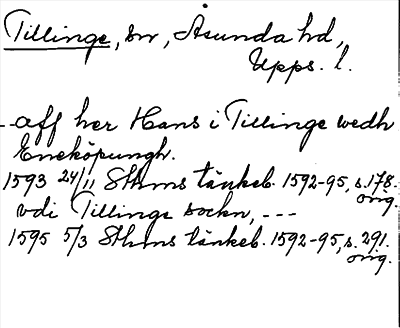 Tillinge, sn, Åsunda hd,
Upps. l.
--aff her Hans i Tillinge wedh
Eneköpungh.
1593 24/11 Sthms tänkeb. 1592-95, s. 178.
orig.
vdi Tillinge sockn, ---
1595 5/3 Sthms tänkeb. 1592-95, s. 291.
orig.